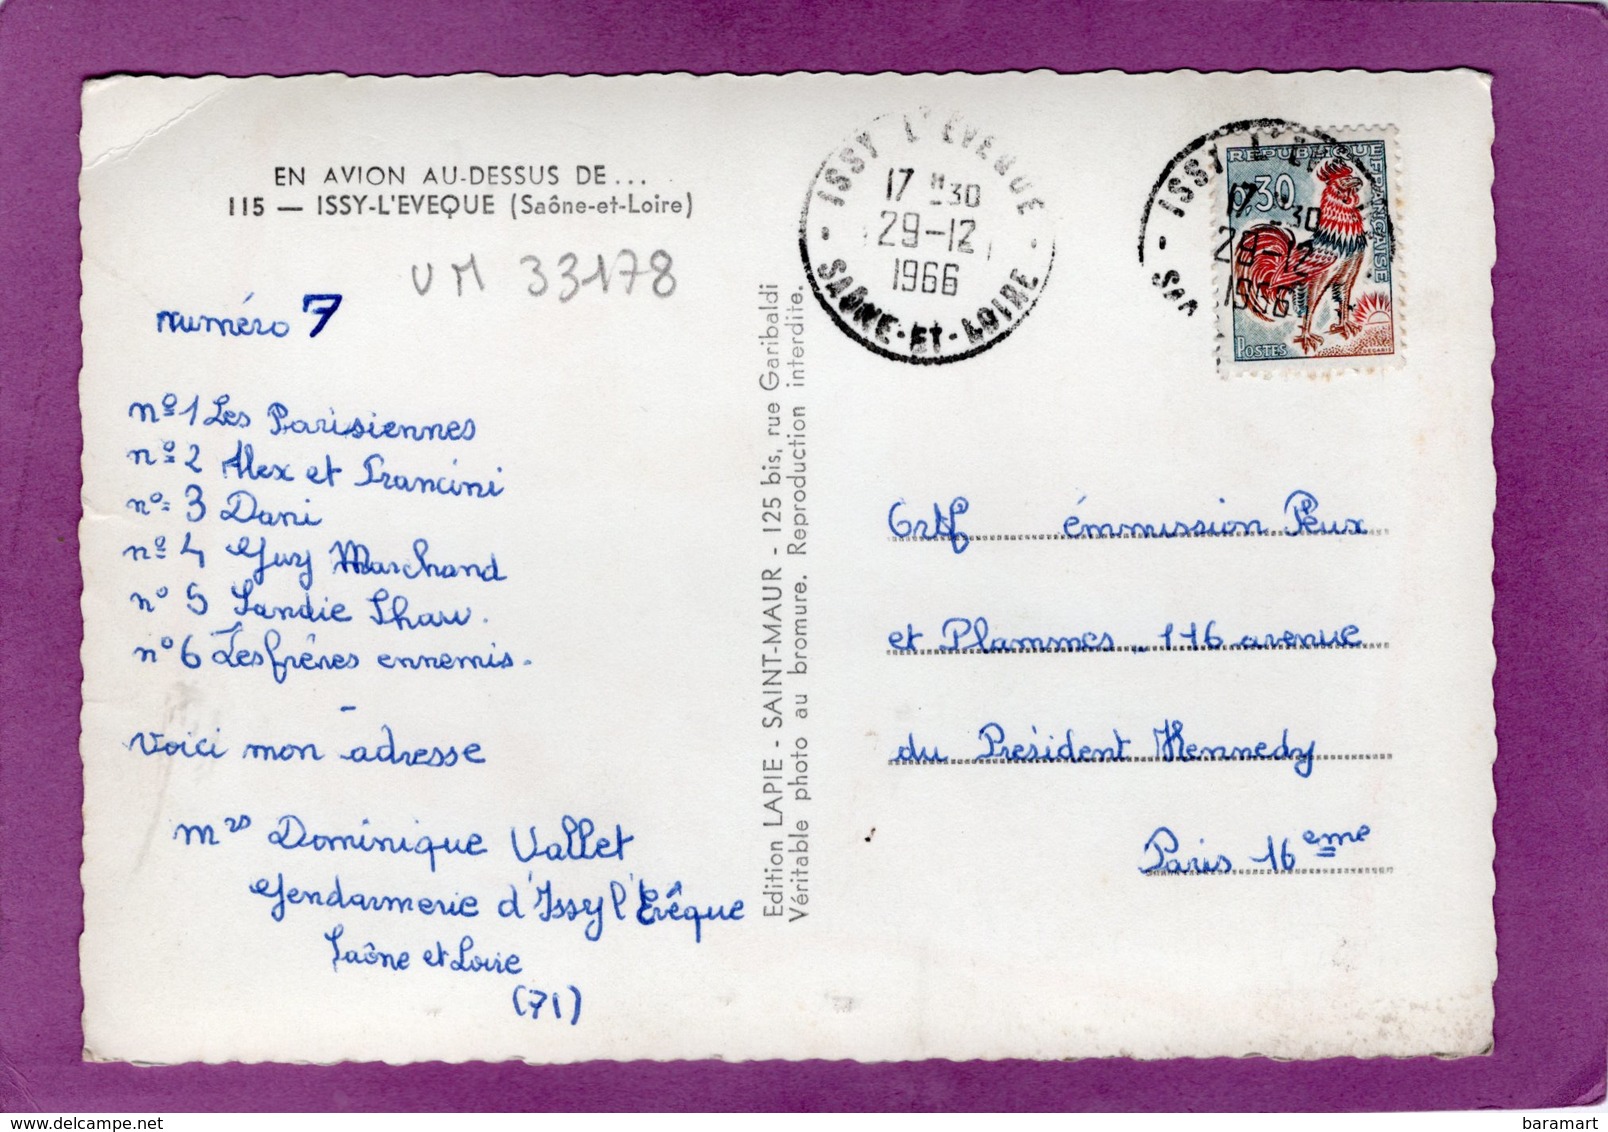 EN AVION AU-DESSUS DE...
115 — ISSY-L'EVEQUE (Saône-et-Loire)
UM 33178
numéro 7
nº1 Les Parisiennes
nº2 Alex et Francini
nº 3 Dani
nº 4 Guy Marchand
nº 5 Sandie Shaw.
nº6 Les frères ennemis.
Voici mon adresse
Mrs Dominique Vallet
Gendarmerie d'Issy l'Evêque
Saône et Loire
(71)
Edition LAPIE - SAINT-MAUR - 125 bis, rue Garibaldi
Véritable photo au bromure. Reproduction interdite.
ISSY L'EVEQUE
17 H 30
29-12
1966
SAÔNE-ET-LOIRE
ISSY L'EVEQUE
17 -30
29-12
1966
REPUBLIQUE FRANÇAISE
0,30
POSTES
DECARIS
Ortf émmission Peux
et Flammes 116 avenue
du Président Kennedy
Paris 16 eme
delcampe.net
baramart